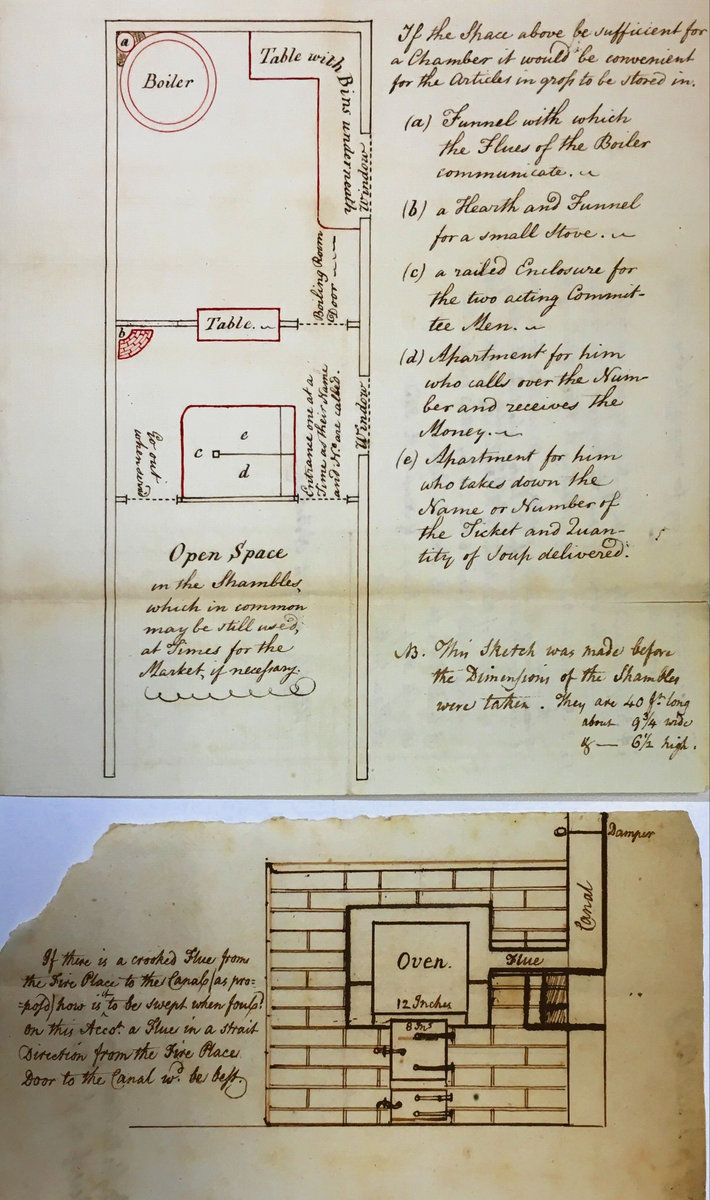 a
Boiler
Table with Bins underneath
Window
Boiling Room
Door
b
Table.
Go out
when served
c
e
d
Entrance one at a
Time as their Name
and No. are called.
Window
Open Space
in the Shambles,
which in common
may be still used,
at Times for the
Market, if necessary.
If the Space above be sufficient for
a Chamber it would be convenient
for the Articles in gross to be stored in.
(a) Funnel with which
the Flues of the Boiler
communicate.
(b) a Hearth and Funnel
for a small Stove.
(c) a railed Enclosure for
the two acting Commit-
tee Men.
(d) Apartment for him
who calls over the Num-
ber and receives the
Money.
(e) Apartment for him
who takes down the
Name or Number of
the Ticket and Quan-
tity of Soup delivered.
NB. This Sketch was made before
the Dimensions of the Shambles
were taken. They are 40 ft. long
about 9 3/4 wide
& — 6 1/2 high.
Damper
Canal
Flue
Oven.
12 Inches
8 Ins
If there is a crooked Flue from
the Fire Place to the Canals (as pro-
posd) how is it to be swept when foul?
on this Acct. a Flue in a strait
Direction from the Fire Place
Door to the Canal wd. be best.